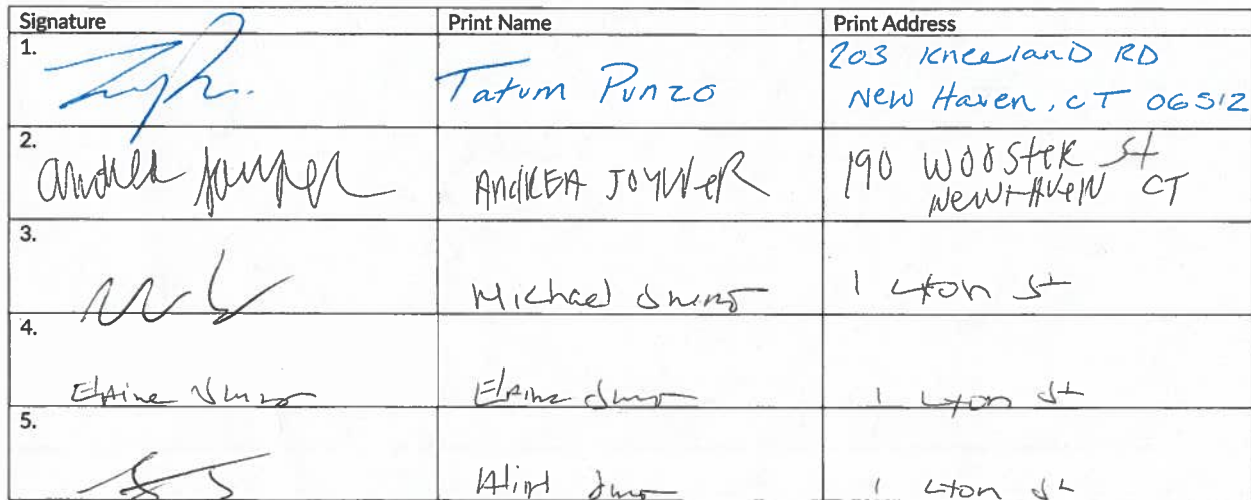 Signature Print Name Print Address
1. Tatum Punzo 203 Kneeland RD
New Haven, CT 06512
2. andrea joyner ANdREA JOYNeR 190 WOOSteR St
NeW HAVeN CT
3. Michael 1 Lyon St
4. Elaine Elaine 1 Lyon St
5. 1 Lyon St